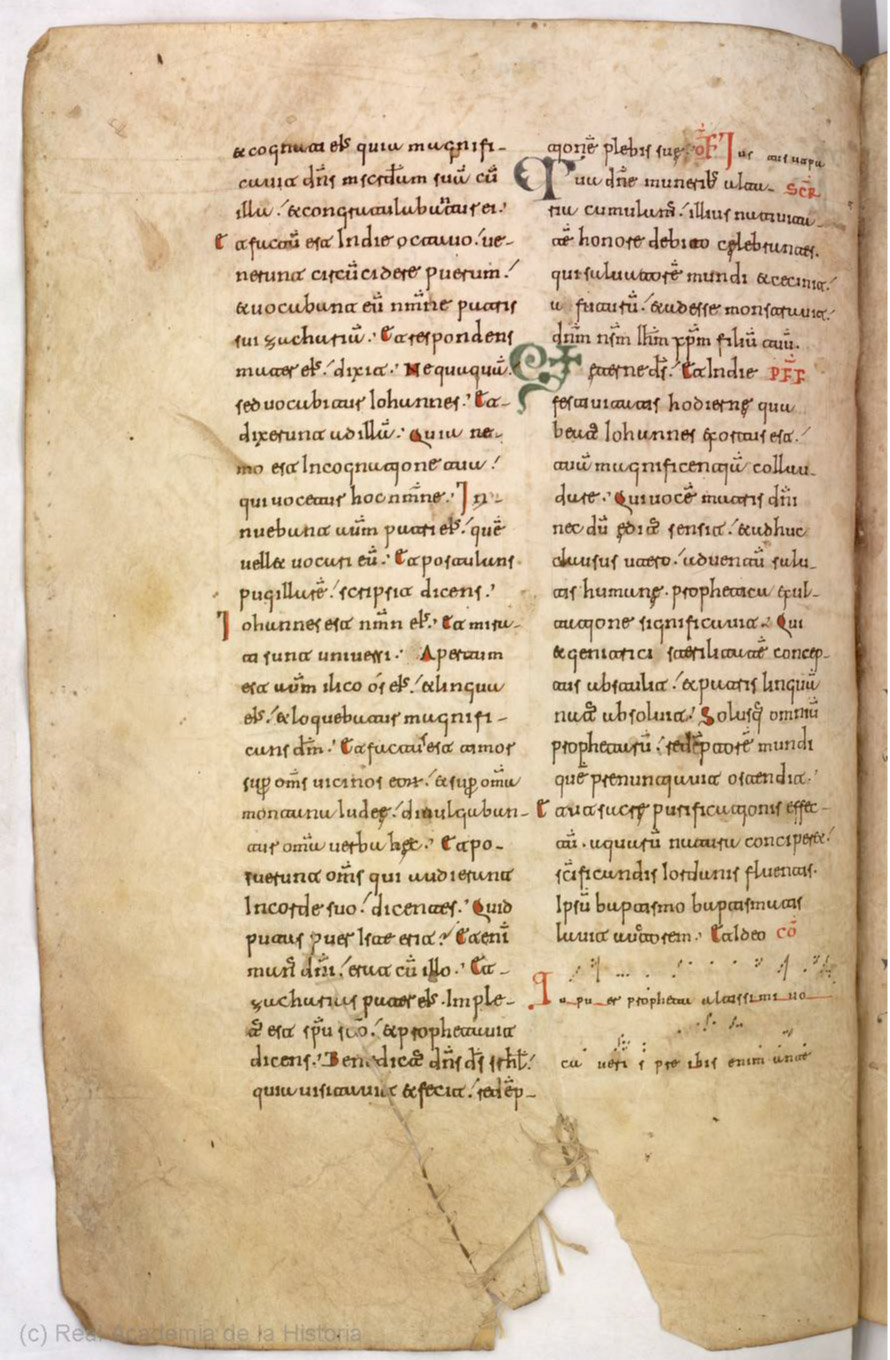 & cognati eiꝰ quia magnifi-
cauit dn̄s mscdiam suā cū
illa. & congratulabantur ei.
Et factū est In die octauo. ue-
nerunt circūcidere puerum.
& uocabant eū nmīne patris
sui zachariā. Et respondens
mater eiꝰ. dixit. Nequaquā.
sed uocabitur Iohannes. Et
dixerunt ad illā. Quia ne-
mo est In cognatione tua.
qui uocetur hoc nmīne. In-
nuebant aūm patri eiꝰ. quē
uellet uocari eū. Et postulans
pugillarē. scripsit dicens.
Iohannes est nm̄n eiꝰ. Et mira-
ti sunt uniuersi. Apertum
est aūm ilico os eiꝰ. & lingua
eiꝰ. & loquebatur magnifi-
cans dm̄. Et factus est timor
suꝑ om̄s uicinos eorꝝ. & suꝑ omīa
montana Iudeę. diuulgaban-
tur omīa uerba hęc. Et po-
suerunt om̄s qui audierunt
In corde suo. dicentes. Quid
putas puer Iste erit? Etenī
manꝰ dn̄i. erat cū illo. Et
zacharias pater eiꝰ. Imple-
tꝰ est sp̄u sc̄o. & prophetauit
dicens. Benedictꝰ dn̄s ds̄ isrhl̄.
quia uisitauit & fecit. redēp-
tionē plebis suę. of̄ Ius
Tua dn̄e munerib; alta- scr̄
ria cumulamꝰ. illius natiuita-
tē honore debito celebrantes.
qui saluatorē mundi & cecinit
futurū. & adesse monstrauit.
dn̄m nsm̄ Ihm̄ xp̄m filiū tuū.
ęterne ds̄. Et In die Pf̄t
festiuitatis hodiernę qua
beatꝰ Iohannes exortus est.
tuā magnificentiā collau-
dare. Qui uocē matris dn̄i
nec dū editꝰ sensit. & adhuc
clausus utero. aduentū salu-
tis humanę. prophetica exul-
tatione significauit. Qui
& genitrici sterilitatē concep-
tus abstulit. & patris linguā
natꝰ absoluit. Solusq̄ omniū
prophetarū. redēptorē mundi
quē prenuntiauit ostendit.
Et ut sacrę purificationis effec-
tū. aquarū natura conciperet.
sc̄ificandis Iordanis fluentis.
Ipsū baptismo baptismatis
lauit auctorem. Et Ideo co̅
Tu puer propheta altissimi uo
caueris preibis enim ante
(c) Real Academia de la Historia